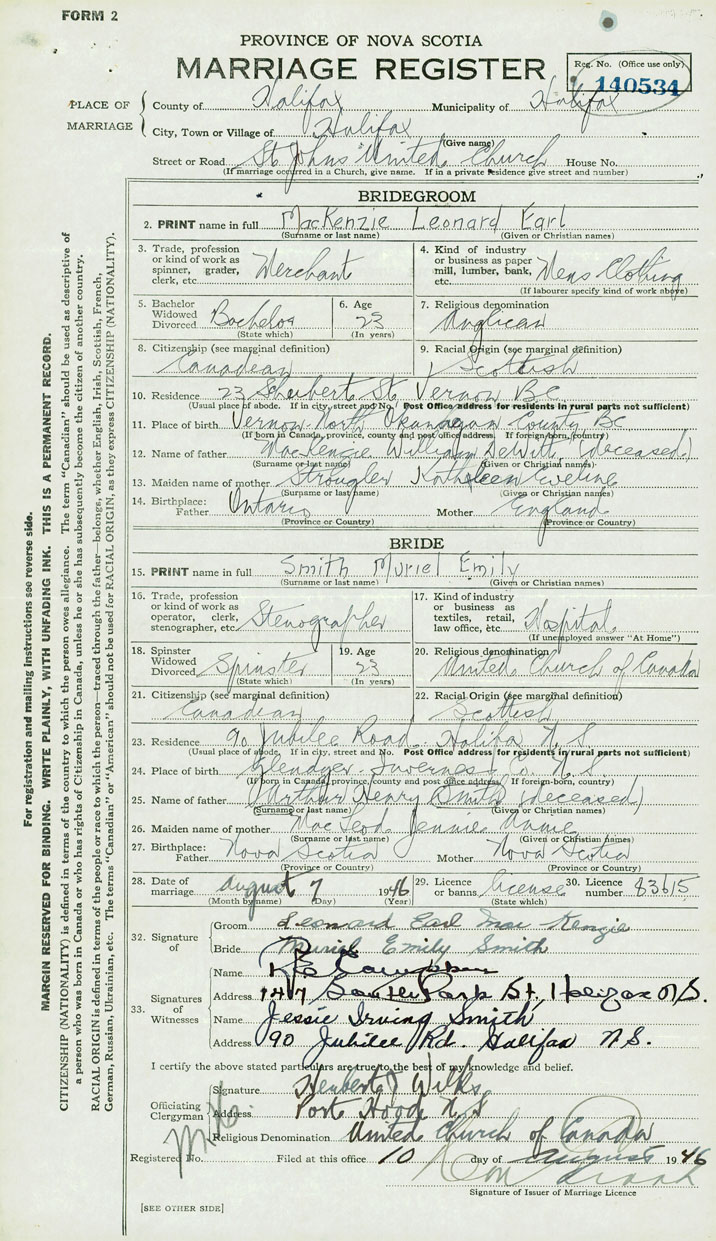 FORM 2
PROVINCE OF NOVA SCOTIA
MARRIAGE REGISTER
Reg. No. (Office use only)
140534
PLACE OF MARRIAGE
County of Halifax Municipality of Halifax
City, Town or Village of Halifax
(Give name)
Street or Road St Johns United Church House No.
(If marriage occurred in a Church, give name. If in a private residence give street and number)
BRIDEGROOM
2. PRINT name in full MacKenzie Leonard Earl
(Surname or last name) (Given or Christian names)
3. Trade, profession or kind of work as spinner, grader, clerk, etc. Merchant
4. Kind of industry or business as paper mill, lumber, bank, etc. Mens Clothing
(If labourer specify kind of work above)
5. Bachelor Widowed Divorced Bachelor
(State which)
6. Age 23
(In years)
7. Religious denomination
Anglican
8. Citizenship (see marginal definition)
Canadean
9. Racial Origin (see marginal definition)
Scottish
10. Residence 23 St. Vernon BC
(Usual place of abode. If in city, street and No. Post Office address for residents in rural parts not sufficient)
11. Place of birth Vernon North Okanagan County BC
(If born in Canada, province, county and post office address. If foreign born, country)
12. Name of father MacKenzie William DeWitt (deceased)
(Surname or last name) (Given or Christian names)
13. Maiden name of mother Kathleen Eveline
(Surname or last name) (Given or Christian names)
14. Birthplace: Father Ontario Mother England
(Province or Country) (Province or Country)
BRIDE
15. PRINT name in full Smith Muriel Emily
(Surname or last name) (Given or Christian names)
16. Trade, profession or kind of work as operator, clerk, stenographer, etc. Stenographer
17. Kind of industry or business as textiles, retail, law office, etc. Hospital
(If unemployed answer "At Home")
18. Spinster Widowed Divorced Spinster
(State which)
19. Age 23
(In years)
20. Religious denomination
United Church of Canada
21. Citizenship (see marginal definition)
Canadian
22. Racial Origin (see marginal definition)
Scottish
23. Residence 90 Jubilee Road, Halifax N.S.
(Usual place of abode. If in city, street and No. Post Office address for residents in rural parts not sufficient)
24. Place of birth Glendyer Inverness Co. N.S.
(If born in Canada, province, county and post office address. If foreign-born, country)
25. Name of father Arthur Henry Smith (deceased)
(Surname or last name) (Given or Christian names)
26. Maiden name of mother MacLeod Jennie
(Surname or last name) (Given or Christian names)
27. Birthplace: Father Nova Scotia Mother Nova Scotia
(Province or Country) (Province or Country)
28. Date of marriage August 7 1946
(Month by name) (Day) (Year)
29. Licence or banns License
(State which)
30. Licence number 83615
32. Signature of
Groom Leonard Earl MacKenzie
Bride Muriel Emily Smith
33. Signatures of Witnesses
Name
Address 147 South Park St, Halifax N.S.
Name Jessie Irving Smith
Address 90 Jubilee Rd. Halifax N.S.
I certify the above stated particulars are true to the best of my knowledge and belief.
Officiating Clergyman
Signature Herbert J Wilks
Address Port Hood N.S
Religious Denomination United Church of Canada
Registered No. Filed at this office 10 day of August 1946
Signature of Issuer of Marriage Licence
[SEE OTHER SIDE]
For registration and mailing instructions see reverse side.
MARGIN RESERVED FOR BINDING. WRITE PLAINLY, WITH UNFADING INK. THIS IS A PERMANENT RECORD.
CITIZENSHIP (NATIONALITY) is defined in terms of the country to which the person owes allegiance. The term "Canadian" should be used as descriptive of
a person who was born in Canada or who has rights of Citizenship in Canada, unless he or she has subsequently become the citizen of another country.
RACIAL ORIGIN is defined in terms of the people or race to which the person—traced through the father—belongs, whether English, Irish, Scottish, French,
German, Russian, Ukrainian, etc. The terms "Canadian" or "American" should not be used for RACIAL ORIGIN, as they express CITIZENSHIP (NATIONALITY).